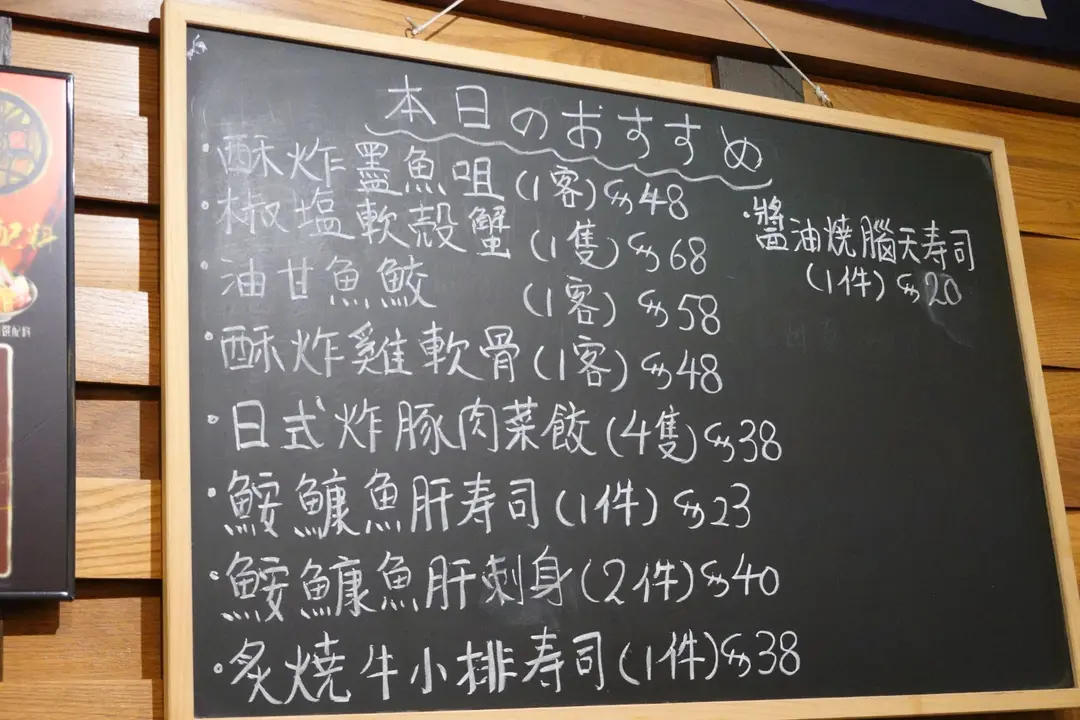 本日のおすすめ
·酥炸墨魚咀(1客)$48
·椒塩軟殼蟹(1隻)$68
·油甘魚鮫(1客)$58
·酥炸雞軟骨(1客)$48
·日式炸豚肉菜餃(4隻)$38
·鮟鱇魚肝寿司(1件)$23
·鮟鱇魚肝刺身(2件)$40
·炙燒牛小排寿司(1件)$38
·醬油燒腦天寿司
(1件)$20